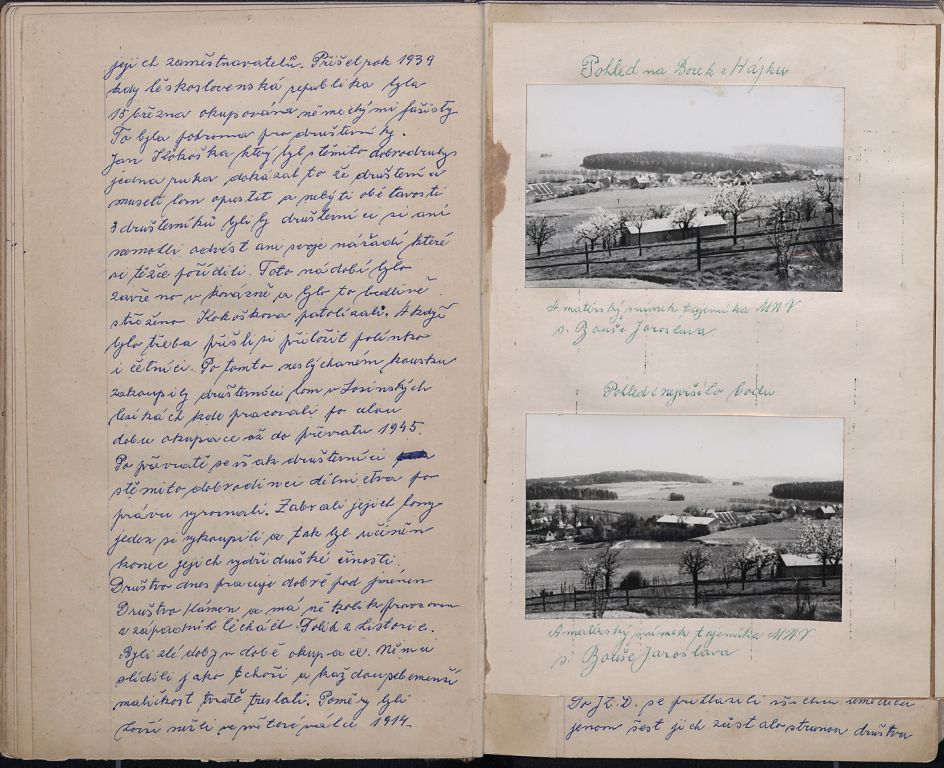 jejich zaměstnavatelů. Přišel rok 1939
kdy československá republika byla
15 března okupována německými fašisty
To byla pohroma pro družstevníky.
Jan Kokoška který byl s těmito dobrodruhy
jedna ruka dokázal to že družstevníci
museli lom opustit a nebýti obětavosti
3 družstevníků byli by družstevníci si ani
nemohli odvést ani svoje nářadí které
si těžce pořídili. Toto nádobí bylo
zavřeno v kovárně a bylo to bedlivě
střeženo Kokoškova patolízali. A když
bylo třeba přišli si přiložit polínko
i četníci. Po tomto neslýchaném kousku
zakoupily družstevníci lom v Losinských
kde pracovali po celou
dobu okupace až do převratu 1945.
Po převratě se však družstevníci
s těmito dobrodinci dělnictva po
právu vyrovnali. Zabrali jejich lomy
jeden si vykoupili a tak byl učiněn
konec jejich vydřidušské činosti
Družstvo dnes pracuje dobře pod jménem
Družstvo Kámen a má několik provozoven
v západních čechách. Tolik z historie.
Byli zlé doby v době okupace. Němci
slídili jako tchoři a každou sebemenší
maličkost tvrdě trestali. Poměry byli
horší nežli ve světové válce 1914.
Pohled na Borek z Hájku
Amatérský snímek tajemníka MNV
s. Bouše Jaroslava
Pohled z nejvyššího bodu
Amatérský snímek tajemníka MNV
s. Bouše Jaroslava
Do J.Z.D. se přihlásili všichni zemědělci
jenom šest jich zůstalo stranou družstva